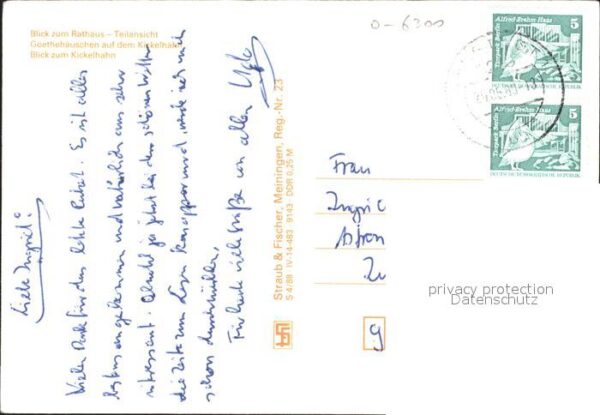 Blick zum Rathaus – Teilansicht
Goethehäuschen auf dem Kickelhahn
Blick zum Kickelhahn
Liebe Ingrid!
Vielen Dank für das letzte Paket. Es ist alles
bestens angekommen und natürlich auch sehr
interessant. Obwohl ja jetzt bei dem schönen Wetter
die Zeite zum Lesen knapper wird, werde ich mich
schon durchwühlen,
Für heute viele Grüße von allen
Straub & Fischer, Meiningen, Reg.-Nr. 23
S 4/89 IV-14-483 9143 DDR 0,25 M
0-6300
Alfred-Brehm-Haus
Tierpark Berlin
5
DEUTSCHE DEMOKRATISCHE REPUBLIK
Alfred-Brehm-Haus
Tierpark Berlin
5
DEUTSCHE DEMOKRATISCHE REPUBLIK
Frau
Ingrid
privacy protection
Datenschutz